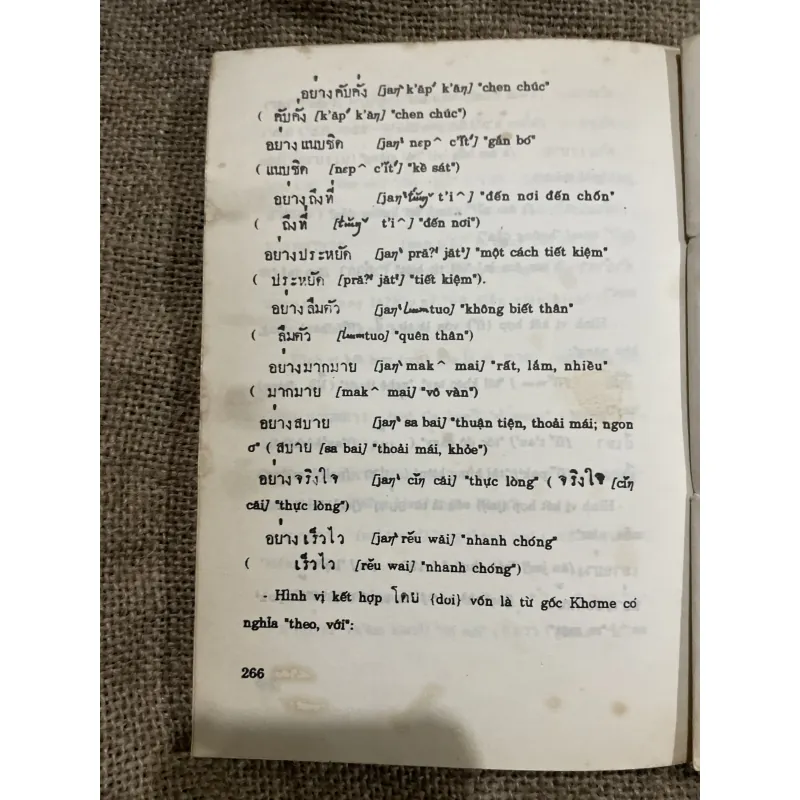 อย่างคับคั่ง [jaŋ` k'âpʹ k'âŋ] "chen chúc"
( คับคั่ง [k'âpʹ k'âŋ] "chen chúc")
อย่างแนบชิด [jaŋ` nɛp^ c'ĭtʹ] "gắn bó"
( แนบชิด [nɛp^ c'ĭtʹ] "kề sát")
อย่างถึงที่ [jaŋ` t'ɯ̆ŋˇ t'i^] "đến nơi đến chốn"
( ถึงที่ [t'ɯ̆ŋˇ t'i^] "đến nơi")
อย่างประหยัด [jaŋ` prăʔ jăt] "một cách tiết kiệm"
( ประหยัด [prăʔ jăt] "tiết kiệm").
อย่างลืมตัว [jaŋ` lɯɯmtuo] "không biết thân"
( ลืมตัว [lɯɯmtuo] "quên thân")
อย่างมากมาย [jaŋ` mak^ mai] "rất, lắm, nhiều"
( มากมาย [mak^ mai] "vô vàn")
อย่างสบาย [jaŋ` sa bai] "thuận tiện, thoải mái; ngon
ơ" ( สบาย [sa bai] "thoải mái, khỏe")
อย่างจริงใจ [jaŋ` cĭŋ câi] "thực lòng" ( จริงใจ [cĭŋ
câi] "thực lòng")
อย่างเร็วไว [jaŋ` rĕu wâi] "nhanh chóng"
( เร็วไว [rĕu wai] "nhanh chóng")
- Hình vị kết hợp โดย {doi} vốn là từ gốc Khơme có
nghĩa "theo, với":
266